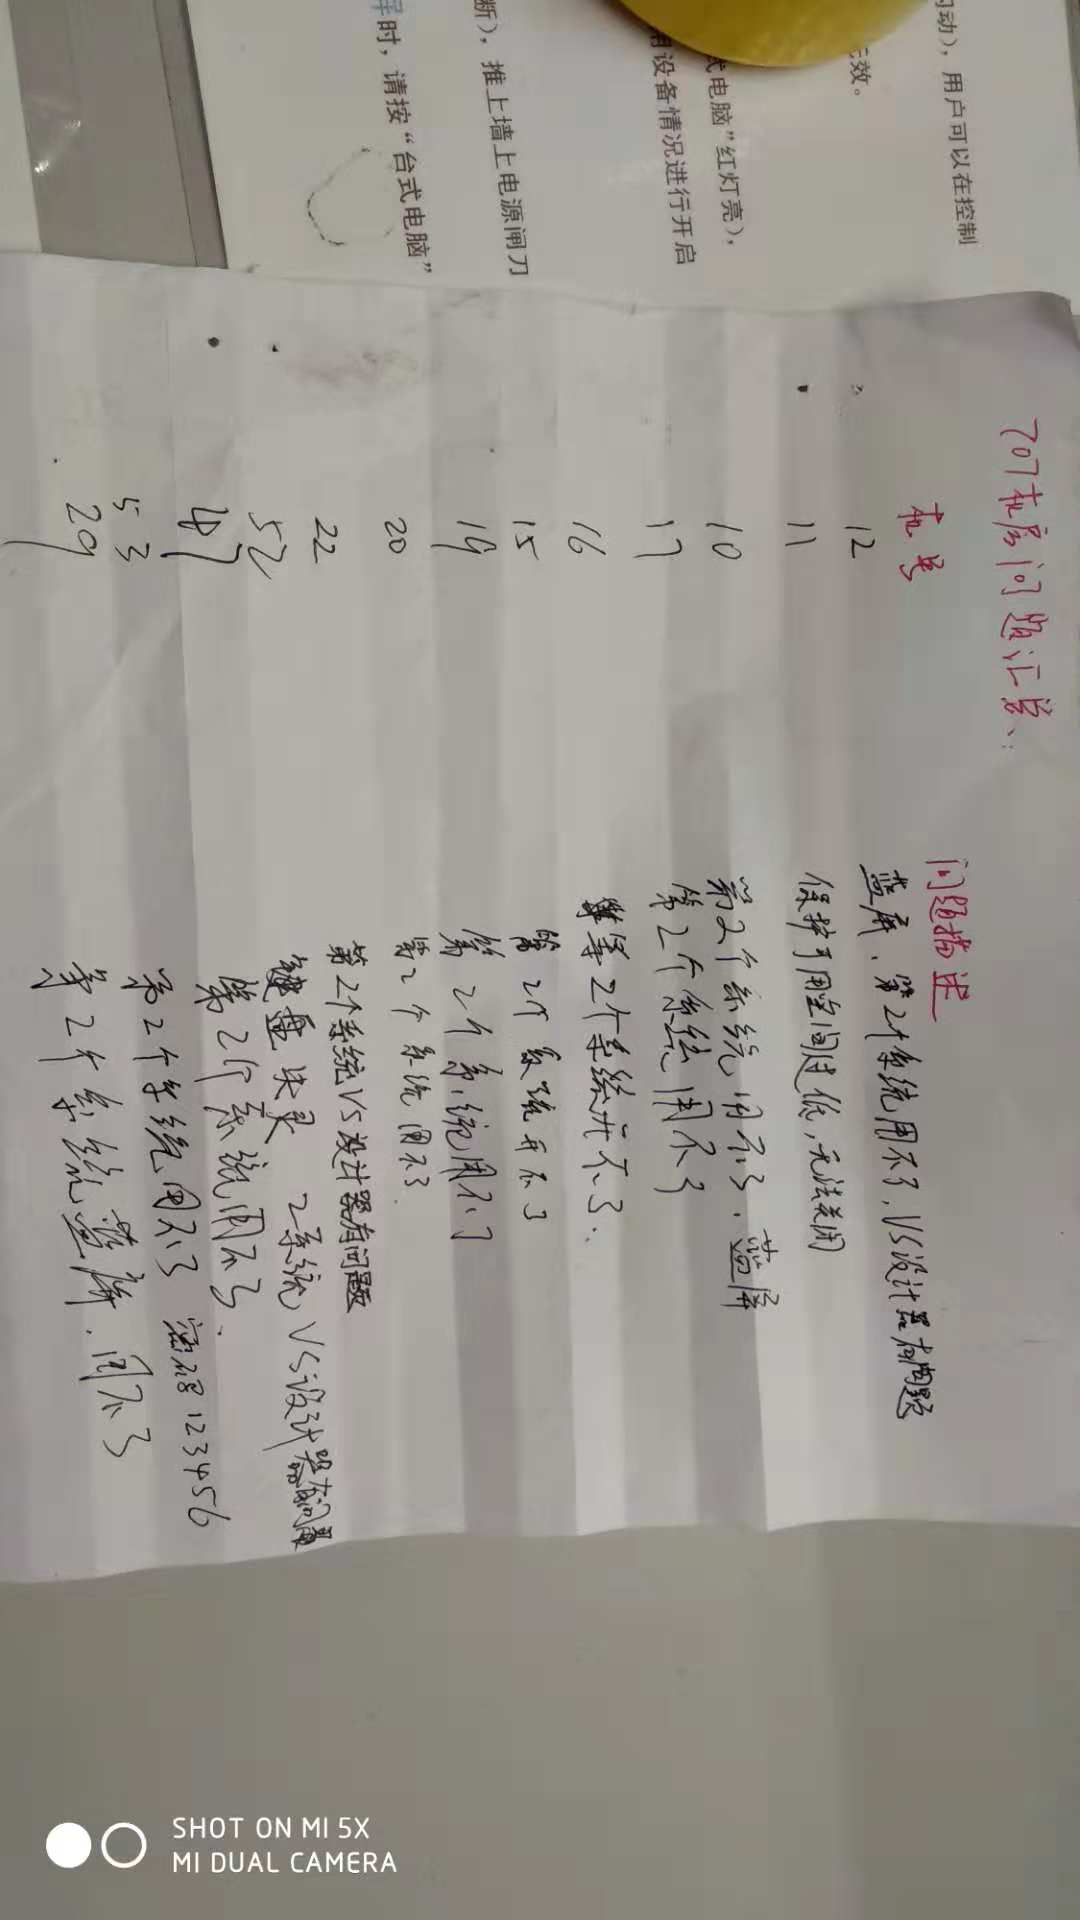 动），用户可以在控制
无效。
式电脑”红灯亮），
用设备情况进行开启
断），推上墙上电源闸刀
屏时，请按“台式电脑”
707机房问题汇总：
机号 问题描述
12 蓝屏、第2个系统用不了，VS设计器有问题
11 保护可用空间过低，无法关闭
10 前2个系统用不了．蓝屏
17 第2个系统用不了
16 第2个系统开不了．
15 第2个系统开不了
19 第2个系统用不了
20 第2个系统用不了．
22 第2个系统VS设计器有问题
52 键盘失灵 2系统VS设计器有问题
47 第2个系统用不了．
53 第2个系统用不了 密码123456
29 第2个系统蓝屏．用不了
SHOT ON MI 5X
MI DUAL CAMERA